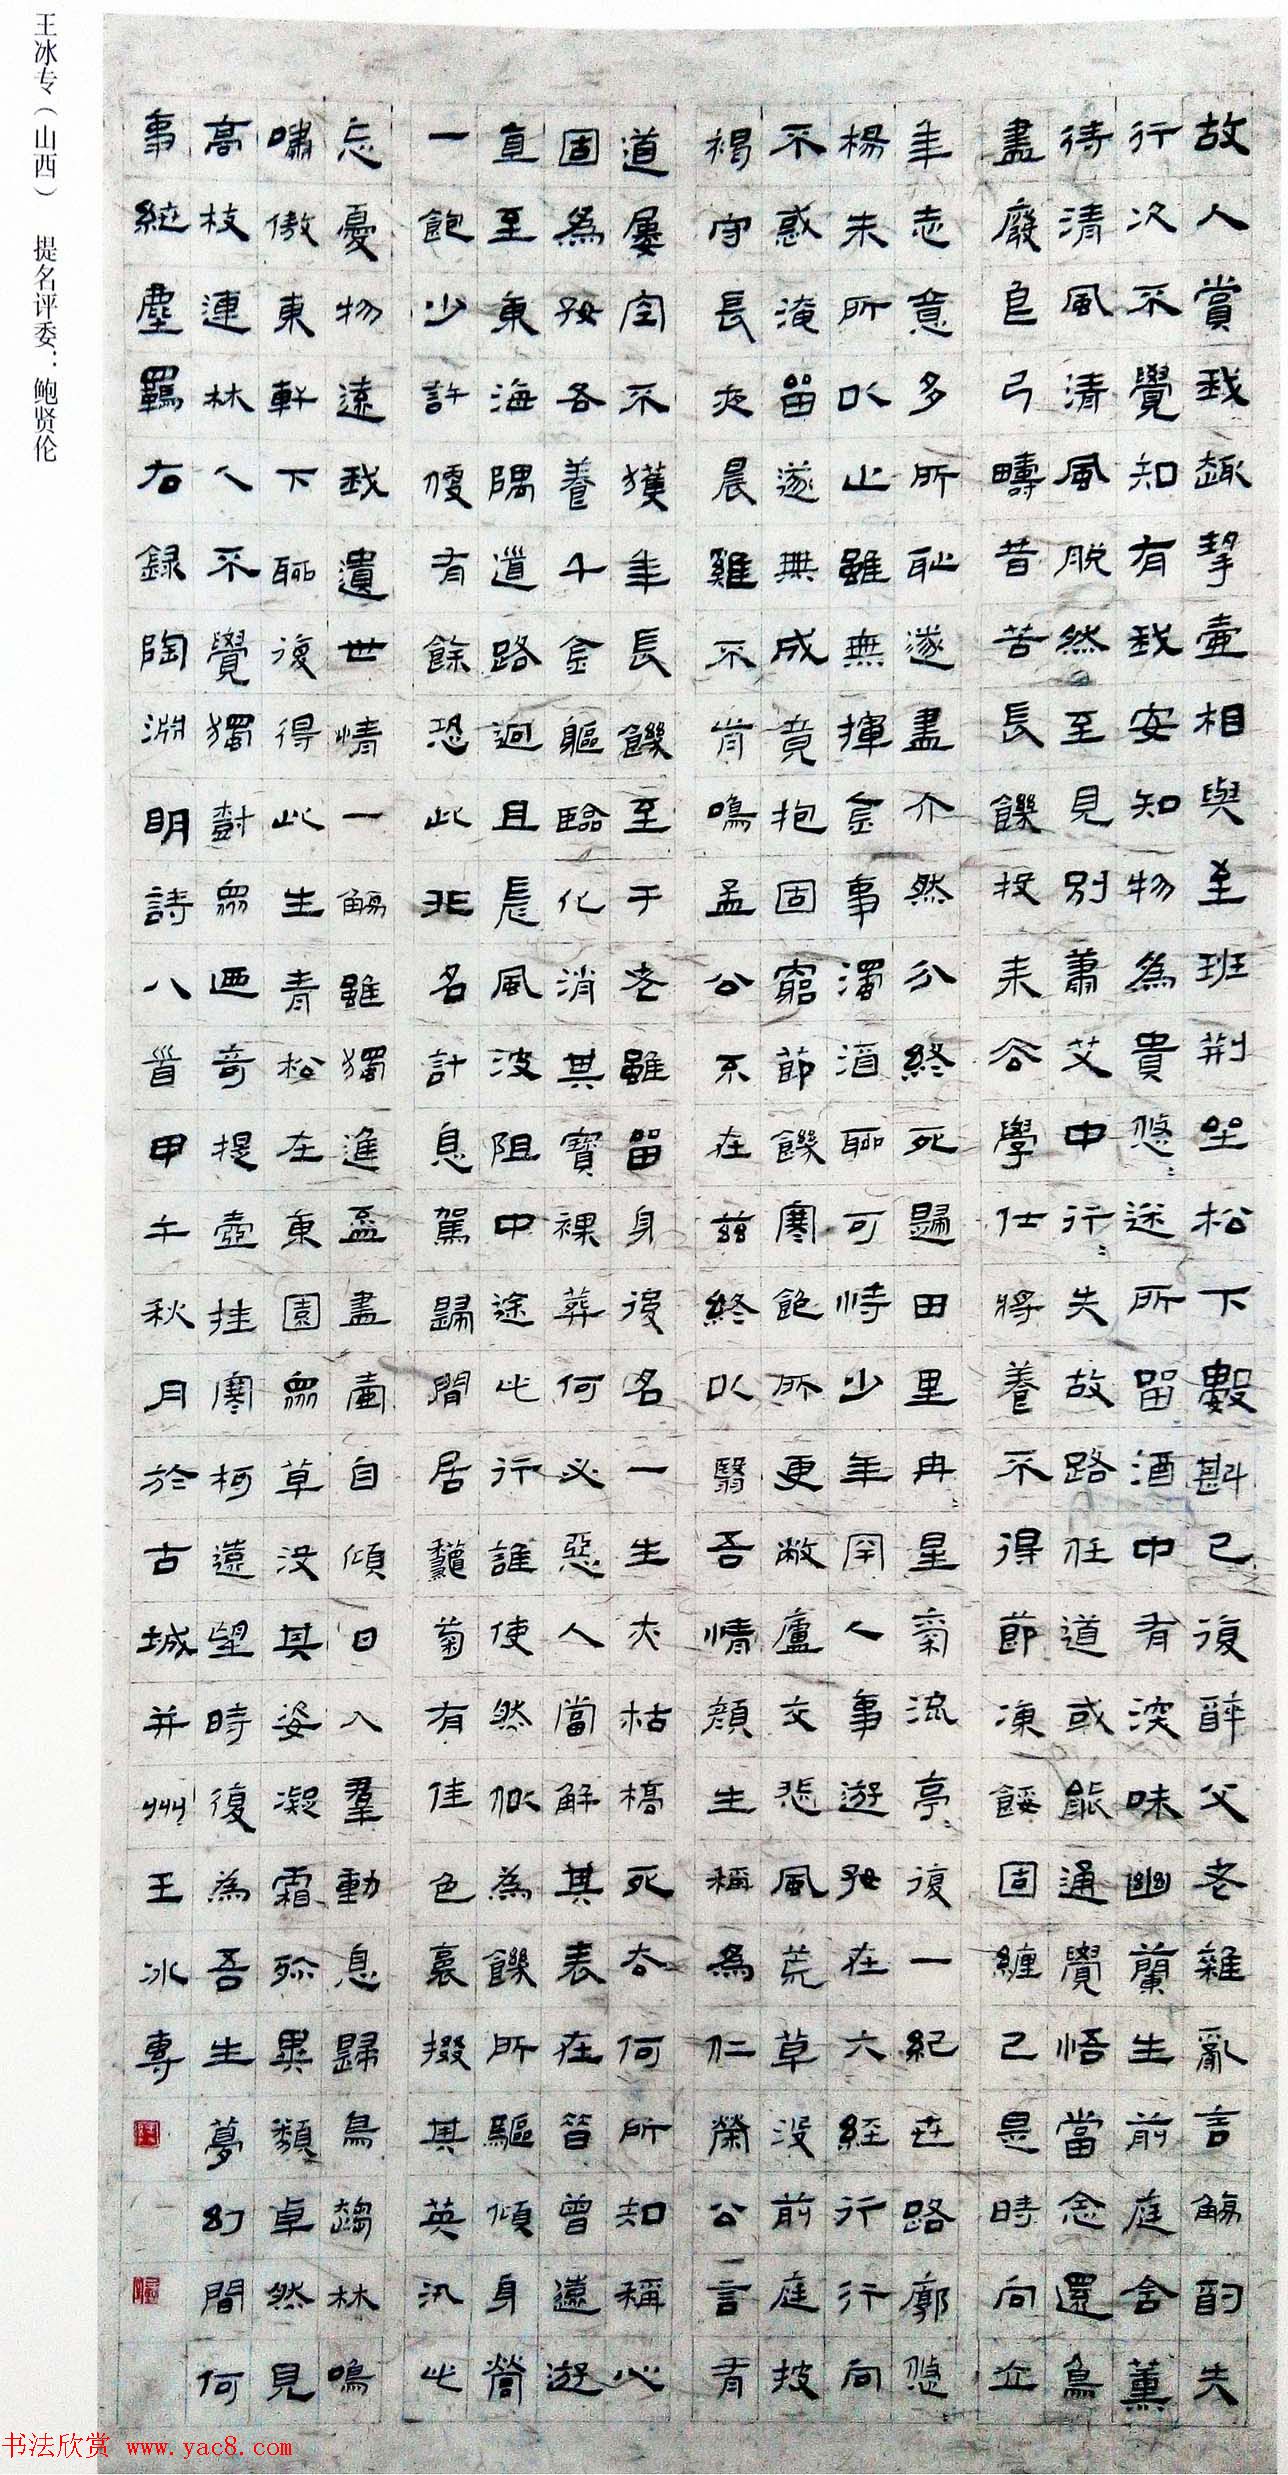 故人賞我趣挈壷相與至班荆坐松下數斟已復醉父老雜亂言觴酌失
行次不覺知有我安知物為貴悠〻迷所留酒中有深味幽蘭生前庭含薰
待清風清風脫然至見別蕭艾中行〻失故路任道或能通覺悟當念還鳥
盡廢良弓疇昔苦長饑投耒去學仕將養不得節凍餒固纏己是時向立
年志意多所恥遂盡介然分終死歸田里冉〻星氣流亭〻復一紀世路廓悠〻
楊朱所以止雖無揮金事濁酒聊可恃少年罕人事遊好在六經行行向
不惑淹留遂無成竟抱固窮節饑寒飽所更敝廬交悲風荒草沒前庭披
褐守長夜晨雞不肯鳴孟公不在茲終以翳吾情顏生稱為仁榮公言有
道屢空不獲年長饑至于老雖留身後名一生亦枯槁死去何所知稱心
固為好各養千金軀臨化消其寶裸葬何必惡人當解其表在昔曾遠遊
直至東海隅道路迥且長風波阻中途此行誰使然似為饑所驅傾身營
一飽少許便有餘恐此非名計息駕歸閒居秋菊有佳色裛掇其英汎此
忘憂物遠我遺世情一觴雖獨進盃盡壷自傾日入羣動息歸鳥趨林鳴
嘯傲東軒下聊復得此生青松在東園眾草沒其姿凝霜殄異類卓然見
高枝連林人不覺獨樹眾迺奇提壺挂寒柯遠望時復為吾生夢幻間何
事紲塵羈右錄陶淵明詩八首甲午秋月於古城并州王冰專
王冰专（山西） 提名评委：鲍贤伦
书法欣赏 www.yac8.com